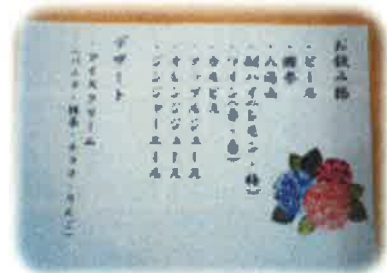 お飲み物
・ビール
・八海山
・酎ハイ(レモン・梅)
・ワイン(赤・白)
・カルピス
・アップルジュース
・オレンジジュース
・ジンジャーエール
デザート
・アイスクリーム
(バニラ・抹茶・